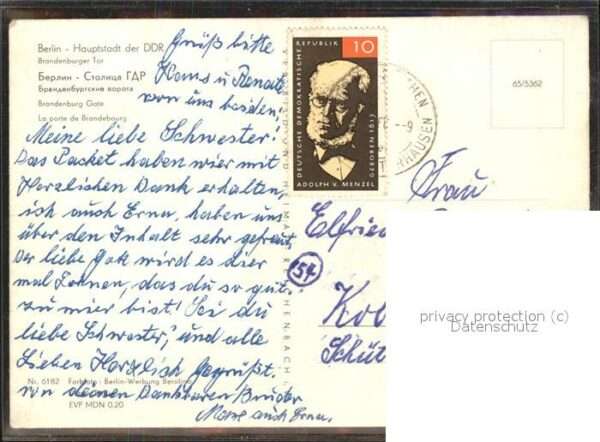 Berlin - Hauptstadt der DDR
Brandenburger Tor
Берлин - Столица ГДР
Бранденбургские ворота
Brandenburg Gate
La porte de Brandebourg
Grüß bitte
Hans u Renate
von uns beiden!
Meine liebe Schwester!
Das Packet haben wier mit
Herzlichen Dank erhalten,
ich auch Erna, haben uns
über den Inhalt sehr gefreut,
der liebe Gott wird es dier
mal Lohnen, das du so gut
zu mier bist! Sei du
liebe Schwester, und alle
Lieben Herzlich Gegrüßt.
von deinen Dankbaren Bruder
auch Erna.
Nr. 6182 Farbfoto: Berlin-Werbung Berolina
EVF MDN 0,20
DEUTSCHE DEMOKRATISCHE REPUBLIK
10
GEBOREN 1815
ADOLPH V. MENZEL
65/5362
Frau
Elfried
54
Kob
Schüt
privacy protection (c)
Datenschutz